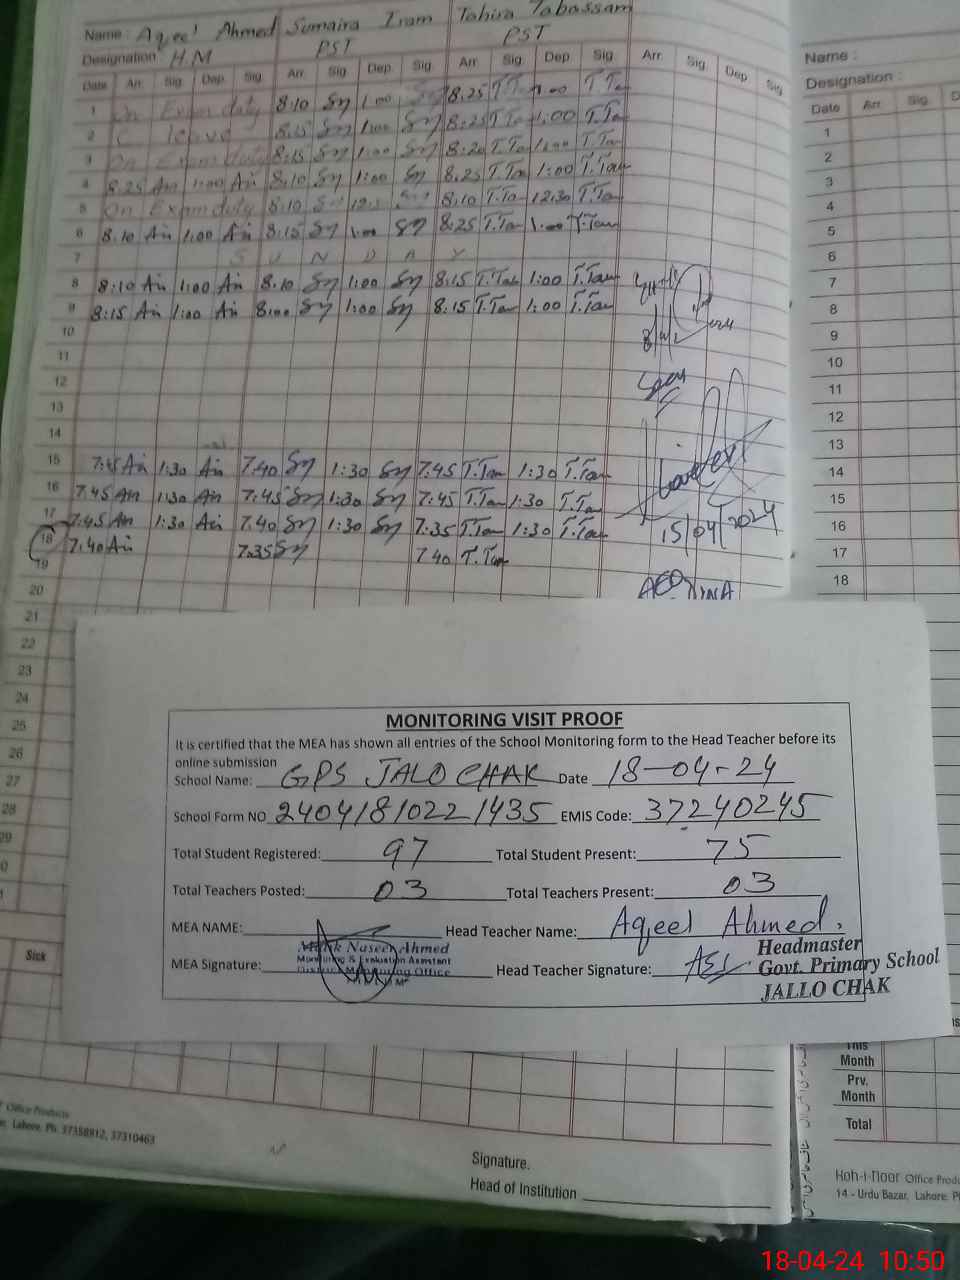 Name : Aqeel Ahmed Sumaira Iram Tahira Tabassam
Designation : H.M PST PST
Date Arr. Sig. Dep. Sig. Arr. Sig. Dep. Sig. Arr. Sig. Dep. Sig. Arr. Sig. Dep. Sig.
1 On duty 8:10 Sy 1:00 8:25 T.Ta 1:00 T.Ta
2 C leave 8:15 Sy 1:00 Sy 8:25 T.Ta 1:00 T.Ta
3 On duty 8:15 Sy 1:00 Sy 8:20 T.Ta 1:00 T.Ta
4 8:25 An 1:00 An 8:10 Sy 1:00 Sy 8:25 T.Ta 1:00 T.Tan
5 On duty 8:10 8:10 T.Ta 12:30 T.Tan
6 8:10 An 1:00 An 8:15 Sy 1:00 Sy 8:25 T.Ta 1:00 T.Tan
7 S U N D A Y
8 8:10 An 1:00 An 8:10 Sy 1:00 Sy 8:15 T.Tan 1:00 T.Tan
9 8:15 An 1:00 An 8:00 Sy 1:00 Sy 8:15 T.Tan 1:00 T.Tan
10
11
12
13
14
15 7:45 An 1:30 An 7:40 Sy 1:30 Sy 7:45 T.Tan 1:30 T.Tan
16 7:45 An 1:30 An 7:45 Sy 1:30 Sy 7:45 T.Tan 1:30 T.Tan
17 7:45 An 1:30 An 7:40 Sy 1:30 Sy 7:35 T.Tan 1:30 T.Tan
18 7:40 An 7:35 Sy 7:40 T.Tan
15/04/2024
19
20
21
22
23
24
25
26
27
28
29
Name :
Designation :
Date Arr. Sig.
1
2
3
4
5
6
7
8
9
10
11
12
13
14
15
16
17
18
MONITORING VISIT PROOF
It is certified that the MEA has shown all entries of the School Monitoring form to the Head Teacher before its
online submission
School Name: GPS JALO CHAK Date 18-04-24
School Form NO 24041810221435 EMIS Code: 37240245
Total Student Registered: 97 Total Student Present: 75
Total Teachers Posted: 03 Total Teachers Present: 03
MEA NAME: Head Teacher Name: Aqeel Ahmed.
Naseer Ahmed
Monitoring & Evaluation Assistant
District Monitoring Office
MEA Signature: Head Teacher Signature:
Headmaster
Govt. Primary School
JALLO CHAK
Sick
This
Month
Prv.
Month
Total
Office Products
Lahore. Ph. 37358812, 37310463
Signature.
Head of Institution
Koh-i-Noor Office
14 - Urdu Bazar, Lahore.
18-04-24 10:50